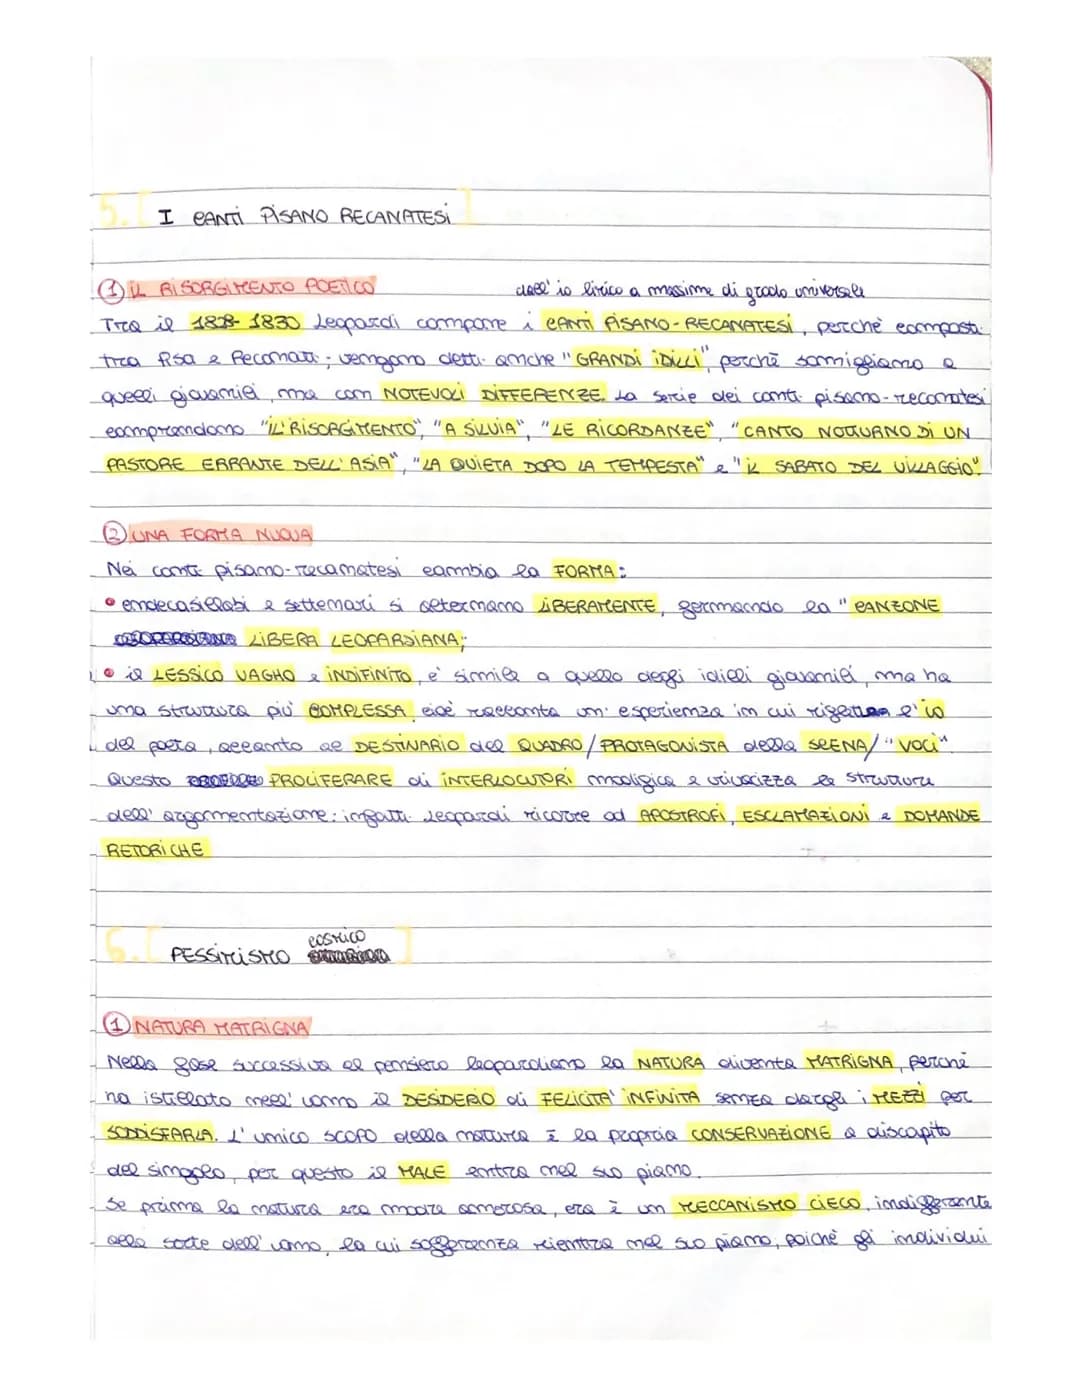 5. [ I CANTI PISANO RECANATESI ]
① IL RISORGIMENTO POETICO
dall'io lirico a massime di grado universale
Tra il 1828-1830 Leopardi compone i CANTI PISANO-RECANATESI, perchè composti
tra Pisa e Recanati; vengono detti anche "GRANDI IDILLI", perchè somigliano a
quelli giovanili, ma con NOTEVOLI DIFFERENZE. La serie dei canti pisano-recanatesi
comprendono "IL RISORGIMENTO", "A SILVIA", "LE RICORDANZE", "CANTO NOTTURNO DI UN
PASTORE ERRANTE DELL'ASIA", "LA QUIETA DOPO LA TEMPESTA" e "IL SABATO DEL VILLAGGIO".
② UNA FORMA NUOVA
Nei canti pisano-recanatesi cambia la FORMA:
• endecasillabi e settenari si alternano LIBERAMENTE, formando la "CANZONE
LIBERA LEOPARDIANA;
• il LESSICO VAGHO e INDIFINITO, e' simile a quello degli idilli giovanili, ma ha
una struttura più COMPLESSA, cioè racconta un' esperienza in cui l'io
del poeta, accanto al DESTINARIO del QUADRO/PROTAGONISTA della SCENA/"VOCI".
Questo PROLIFERARE di INTERLOCUTORI modifica e vivacizza la struttura
dell'argomentazione: infatti Leopardi ricorre ad APOSTROFI, ESCLAMAZIONI e DOMANDE
RETORICHE
6. [ PESSIMISMO COSMICO ]
① NATURA MATRIGNA
Nella fase successiva al pensiero leopardiano la NATURA diventa MATRIGNA, perchè
ha istillato nell'uomo il DESIDERIO di FELICITA' INFINITA senza dargli i MEZZI per
SODDISFARLA. L'unico SCOPO della natura è la propria CONSERVAZIONE a discapito
del singolo, per questo il MALE entra nel suo piano.
Se prima la natura era madre amorosa, ora è un MECCANISMO CIECO, indifferente
alla sorte dell'uomo, la cui sofferenza rientra nel suo piano, poichè gli individui